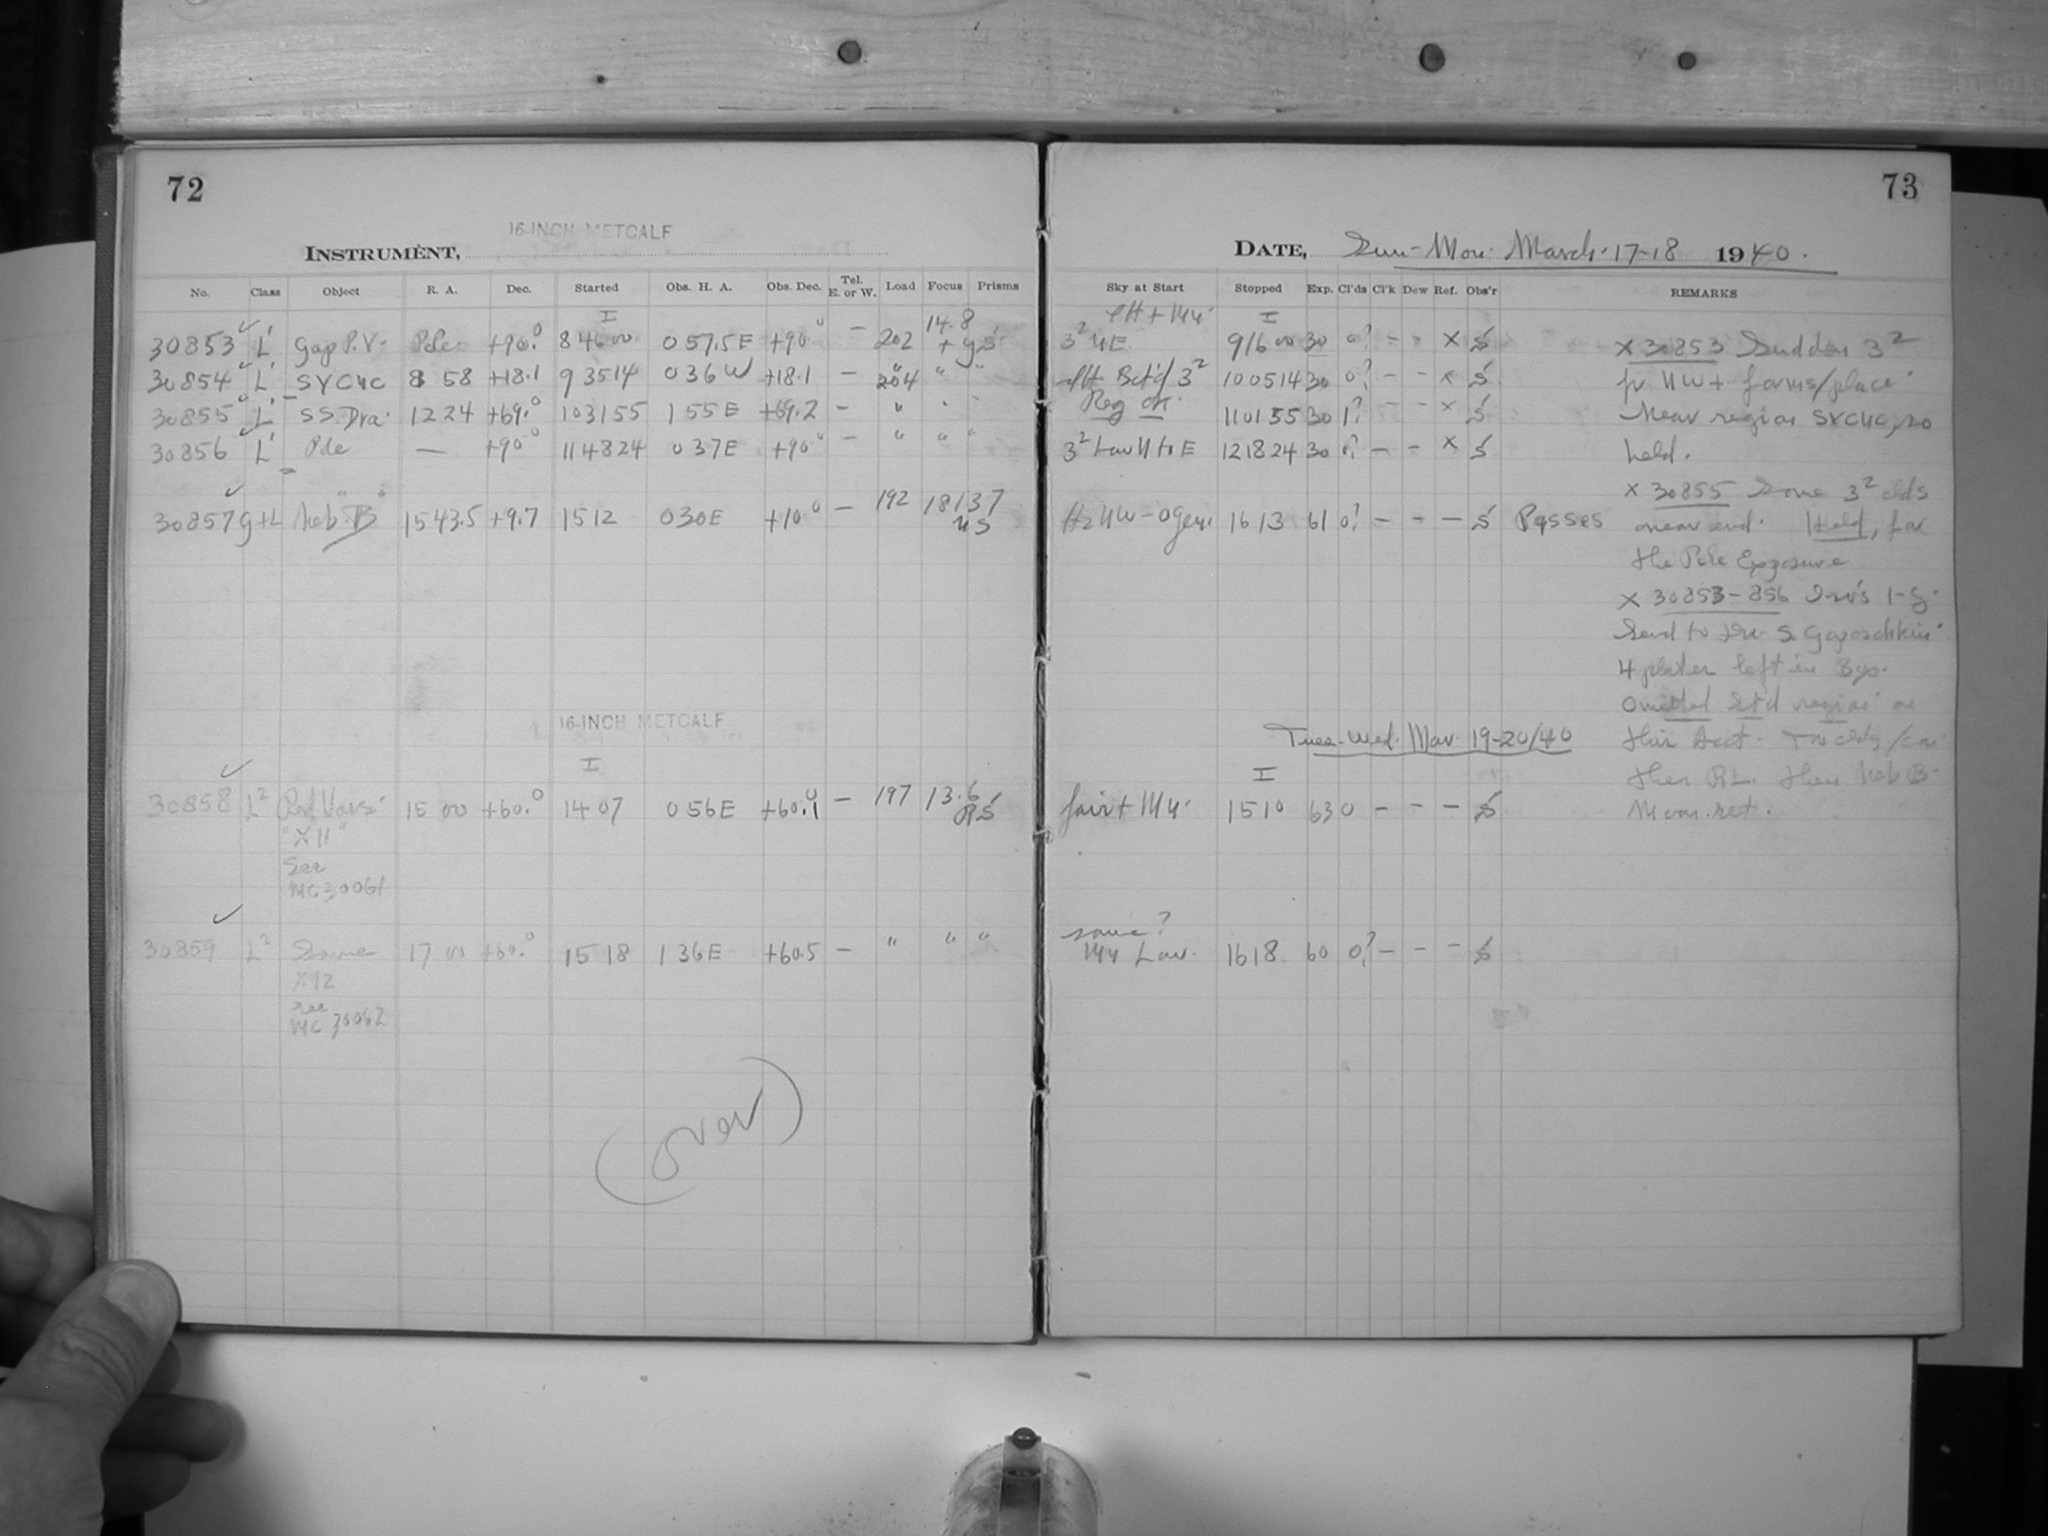 72
16-INCH METCALF
INSTRUMENT,
No. Class Object R. A. Dec. Started Obs. H. A. Obs. Dec. Tel. E. or W. Load Focus Prisms
I
30853 L Gap P.V. Pole +90.0 8 46 00 0 57.5 E +90.0 — 202 14.8
30854 L SYCnc 8 58 +18.1 9 35 14 0 36 W +18.1 — 204 " "
30855 L SS Dra. 12 24 +69.0 10 31 55 1 55 E +69.2 — "
30856 L Pole — +90.0 11 48 24 0 37 E +90.0 — " " "
30857 g+L Neb. "B" 15 43.5 +9.7 15 12 0 30 E +10.0 — 192 18137
16-INCH METCALF
I
30858 L2 Vars. 15 00 +60.0 14 07 0 56 E +60.1 — 197 13.6
"X11"
See
MC 30061
30859 L2 Same 17 00 +60.0 15 18 1 36 E +60.5 — " " "
X12
see
MC 30062
(over)
73
DATE, Sun-Mon. March 17-18 1940.
Sky at Start Stopped Exp. Cl'ds Cl'k Dew Ref. Obs'r REMARKS
I
3² NE. 9 16 00 30 0? - - X S
3² 10 05 14 30 0? - - x S
Reg ok. 11 01 55 30 1? - - x S
3² Low N to E 12 18 24 30 0? - - X S
16 13 61 0? - - - S Passes
X 30853 Sudden 3²
fr. NW + forms/place
Near region SYCnc, so
held.
X 30855 Some 3² clds
near end. Held, for
the Pole Exposure
X 30853-856
Send to Dr. S. Gaposchkin
4 plates left in
Omitted St'd region
Tues-Wed. Mar. 19-20/40
then RL. then Neb B.
Moon set.
I
fair + 15 10 63 0 - - - S
same?
Low. 16 18 60 0? - - - S